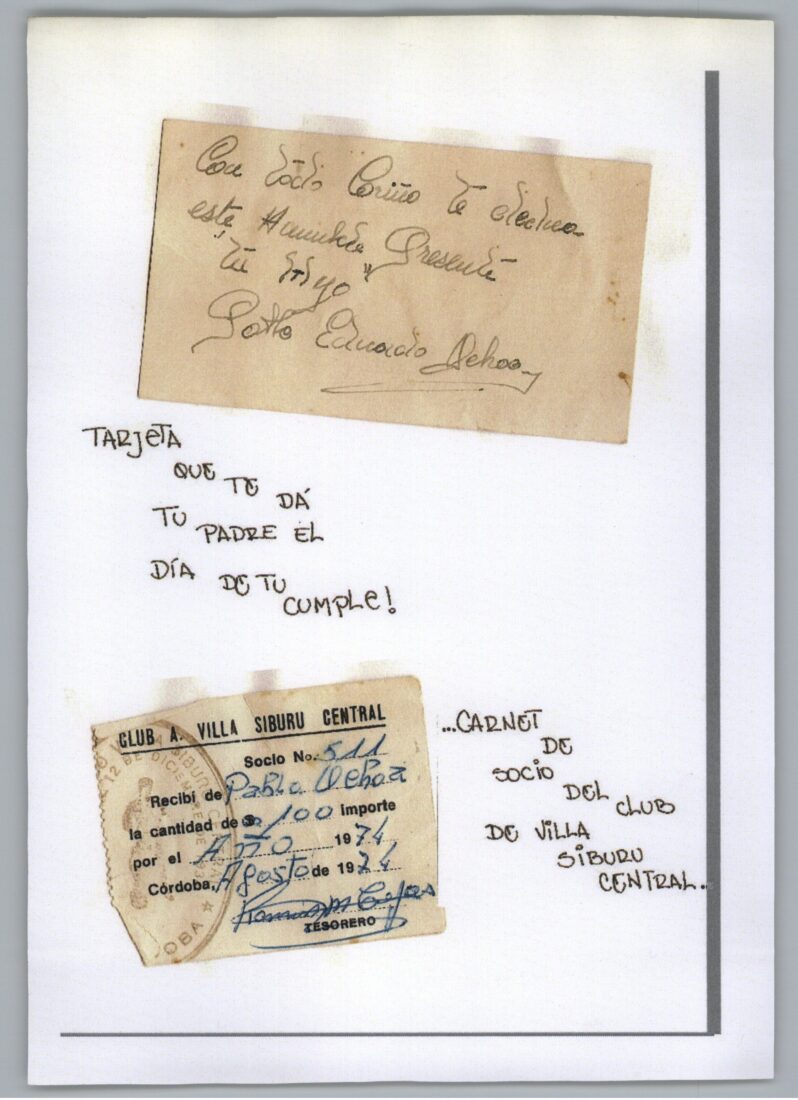 Con todo Cariño te dedica
este Humilde Presente
"tu Hijo"
Pablo Eduardo Ochoa
TARJETA
QUE TE DÁ
TU PADRE EL
DÍA DE TU
CUMPLE!
CLUB A. VILLA SIBURU CENTRAL
Socio No. 511
Recibí de Pablo Ochoa
la cantidad de $ 100 importe
por el Año 1974
Córdoba, Agosto de 1974
TESORERO
12 DE DICIEMBRE DE
OBA ★
...CARNET
DE
SOCIO
DEL CLUB
DE VILLA
SIBURU
CENTRAL.